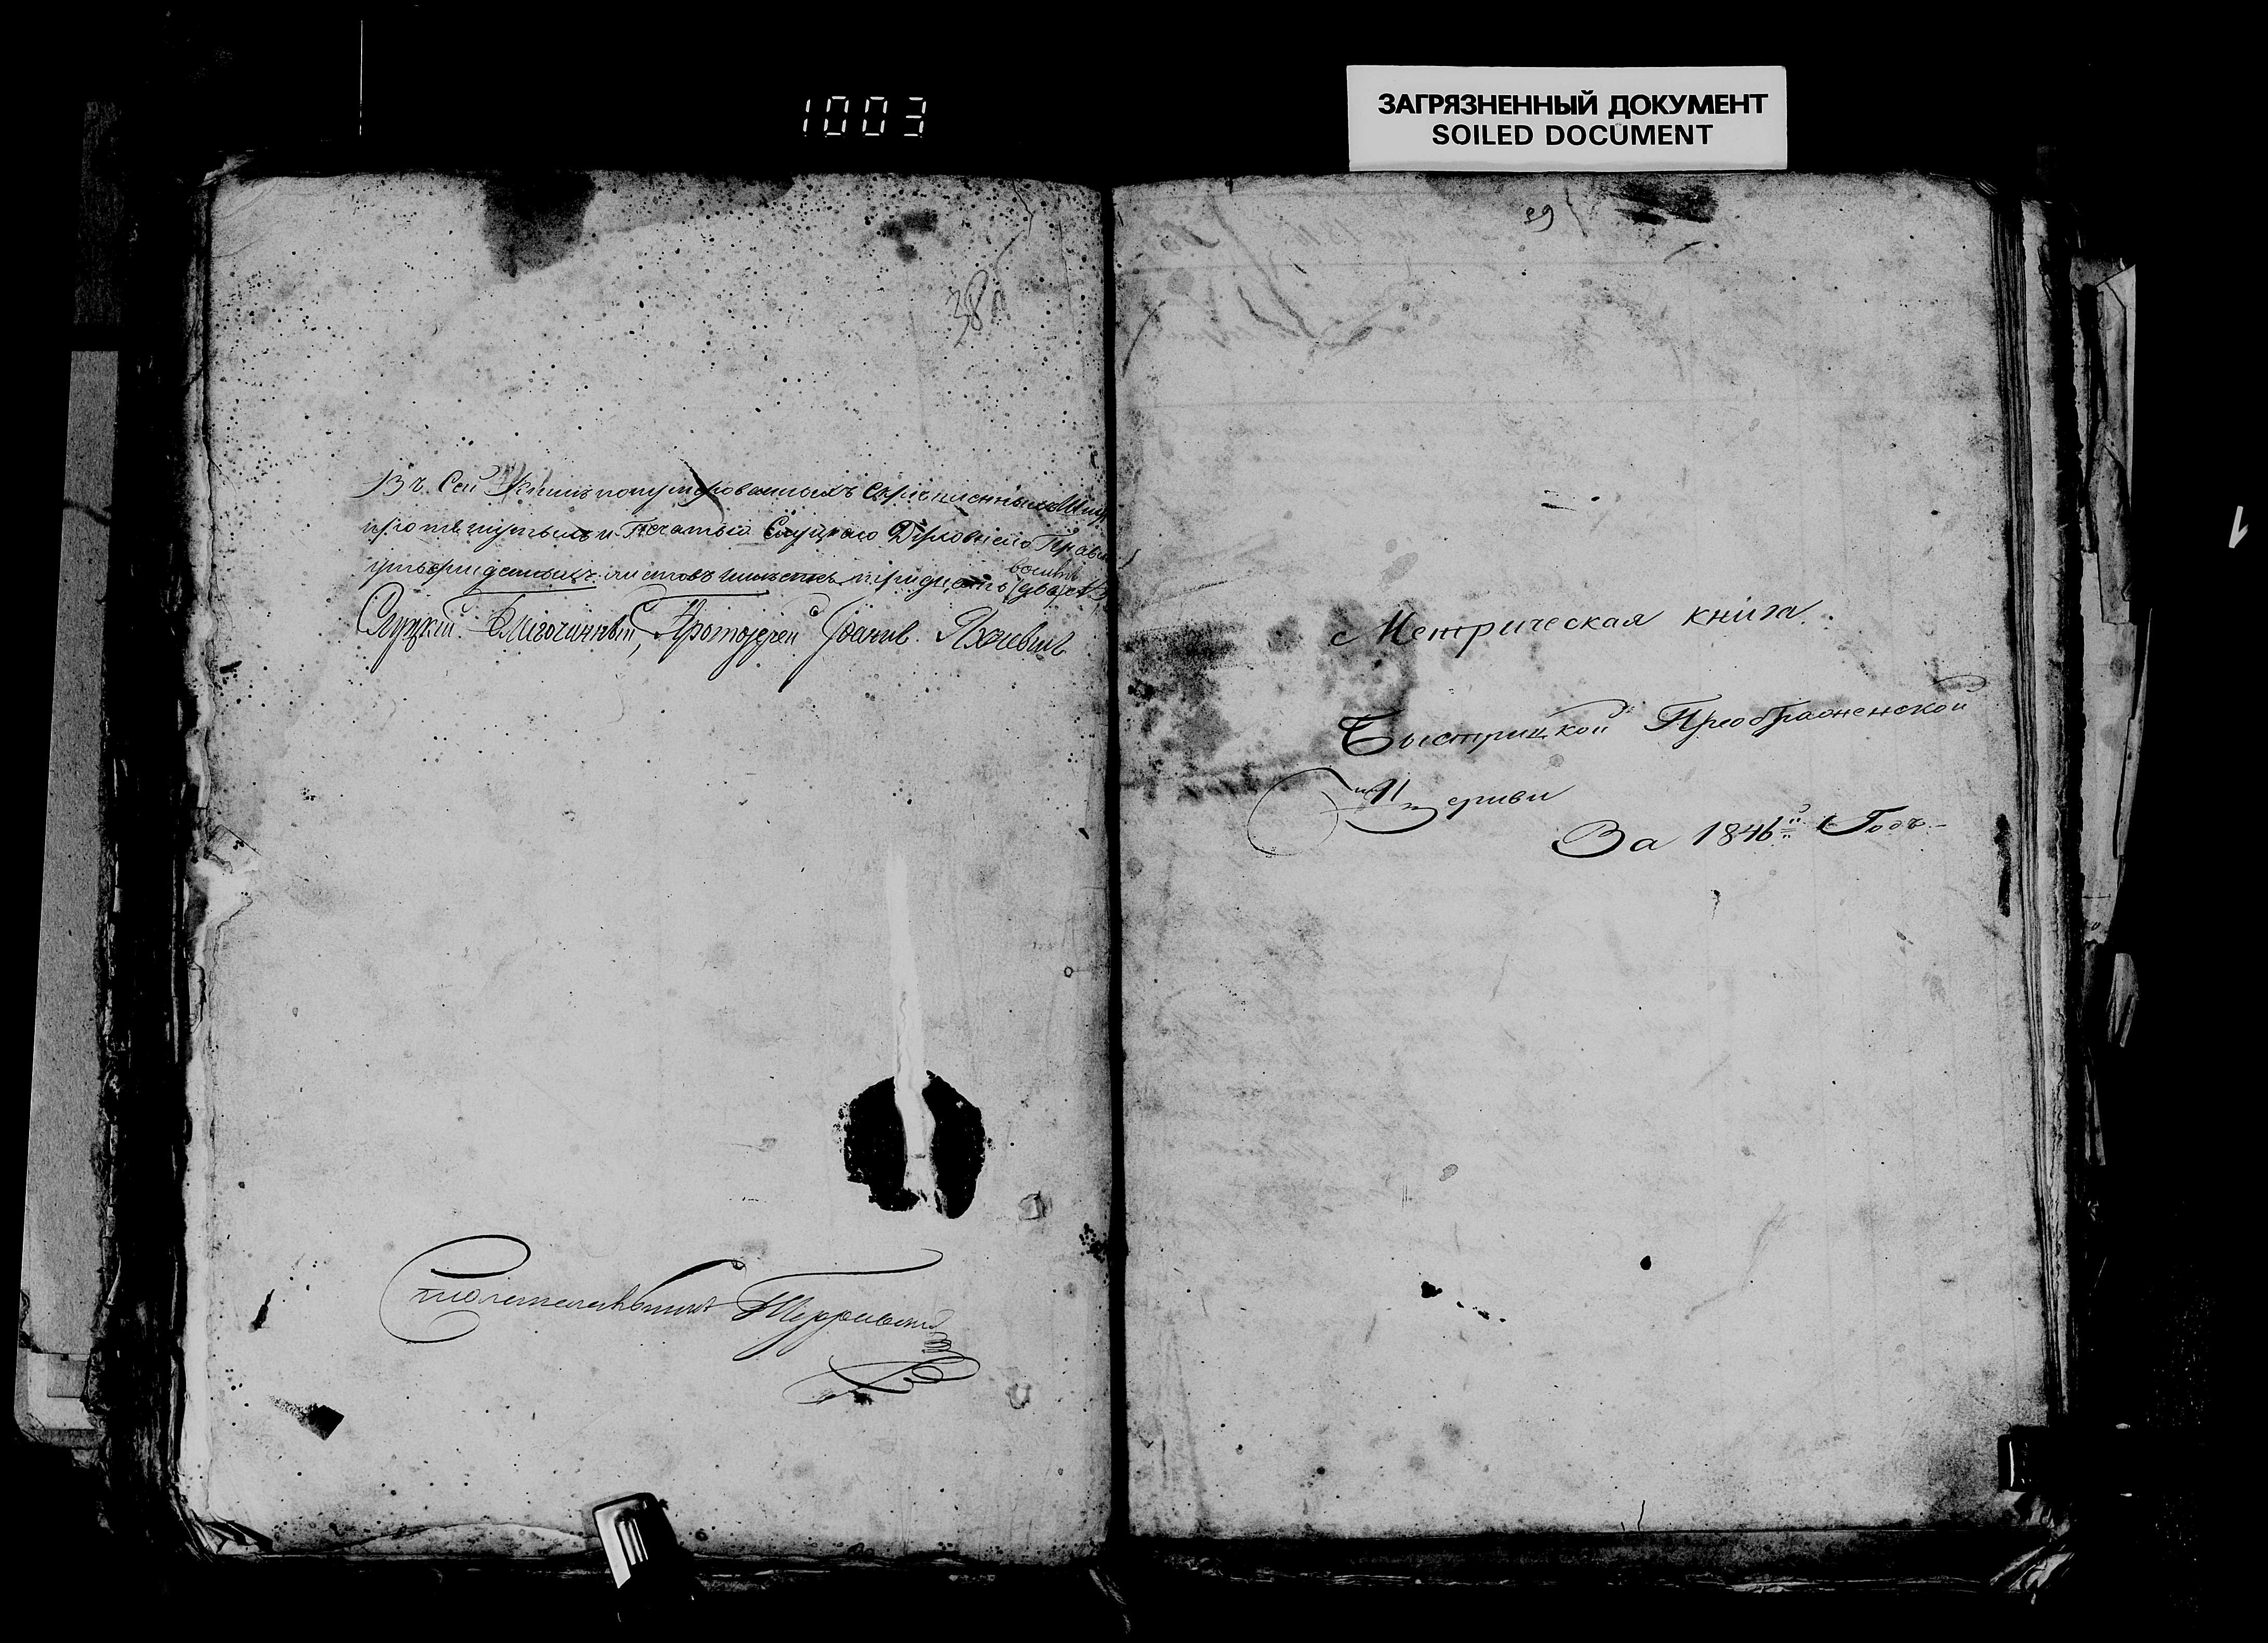 1003
ЗАГРЯЗНЕННЫЙ ДОКУМЕНТ
SOILED DOCUMENT
38
Въ Сей Книгѣ понумерованныхъ скрѣпленныхъ Шнур
протянутыхъ и Печатью Слуцкаго Духовнаго Правл
утвержденныхъ листовъ имѣется тридцать восемь
Слуцкій Благочинный, Протоіерей Іоаннъ
39
Метрическая книга
Быстрицкой Преображенской
Церкви
За 1846й Годъ
1